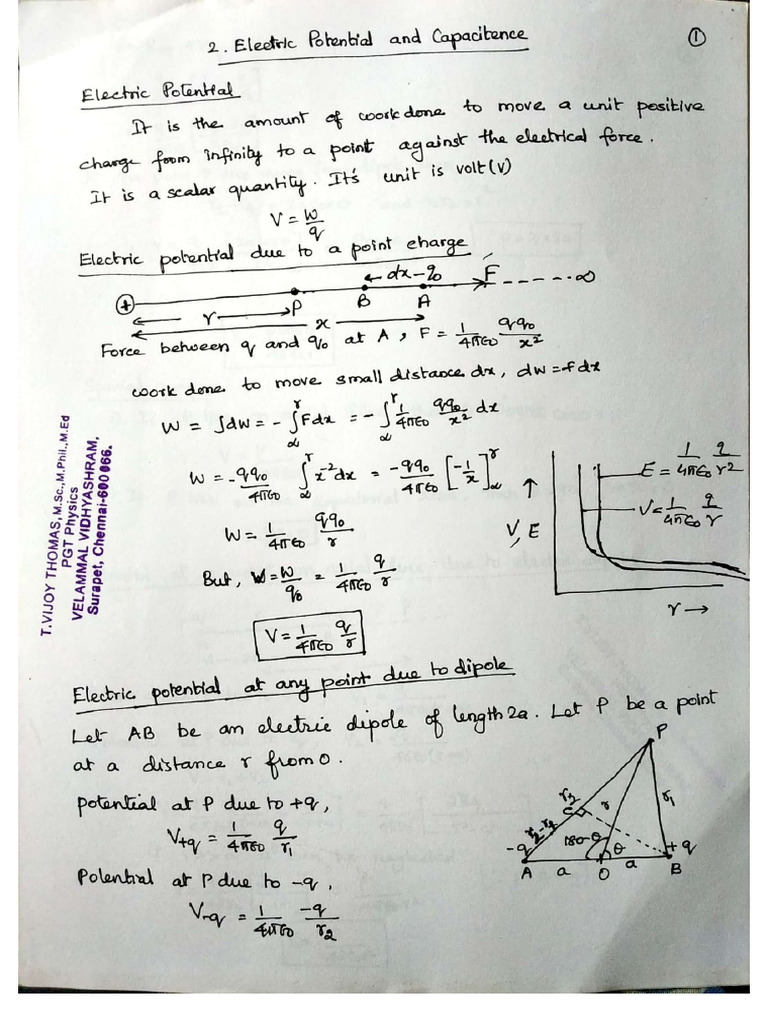 2. Electric Potential and Capacitence
1
Electric Potential
It is the amount of workdone to move a unit positive
charge from infinity to a point against the electrical force.
It is a scalar quantity. It's unit is volt (V)
V = W/q
Electric potential due to a point charge
+ P B A dx q₀ F ∞
r
x
Force between q and q₀ at A, F = 1/4πε₀ qq₀/x²
work done to move small distance dx, dw = -F dx
W = ∫dw = - ∫_∞^r Fdx = - ∫_∞^r 1/4πε₀ qq₀/x² dx
W = -qq₀/4πε₀ ∫_∞^r x⁻² dx = -qq₀/4πε₀ [-1/x]_∞^r
W = 1/4πε₀ qq₀/r
But, V = W/q₀ = 1/4πε₀ q/r
V = 1/4πε₀ q/r
V, E
E = 1/4πε₀ q/r²
V = 1/4πε₀ q/r
r →
T.VIJOY THOMAS, M.Sc., M.Phil., M.Ed
PGT Physics
VELAMMAL VIDHYASHRAM,
Surapet, Chennai-600 066.
Electric potential at any point due to dipole
Let AB be an electric dipole of length 2a. Let P be a point
at a distance r from O.
potential at P due to +q,
V+q = 1/4πε₀ q/r₁
Potential at P due to -q,
V-q = 1/4πε₀ -q/r₂
P
r₂ r r₁
C
r₂-r₁
180-θ θ
-q +q
A a O a B